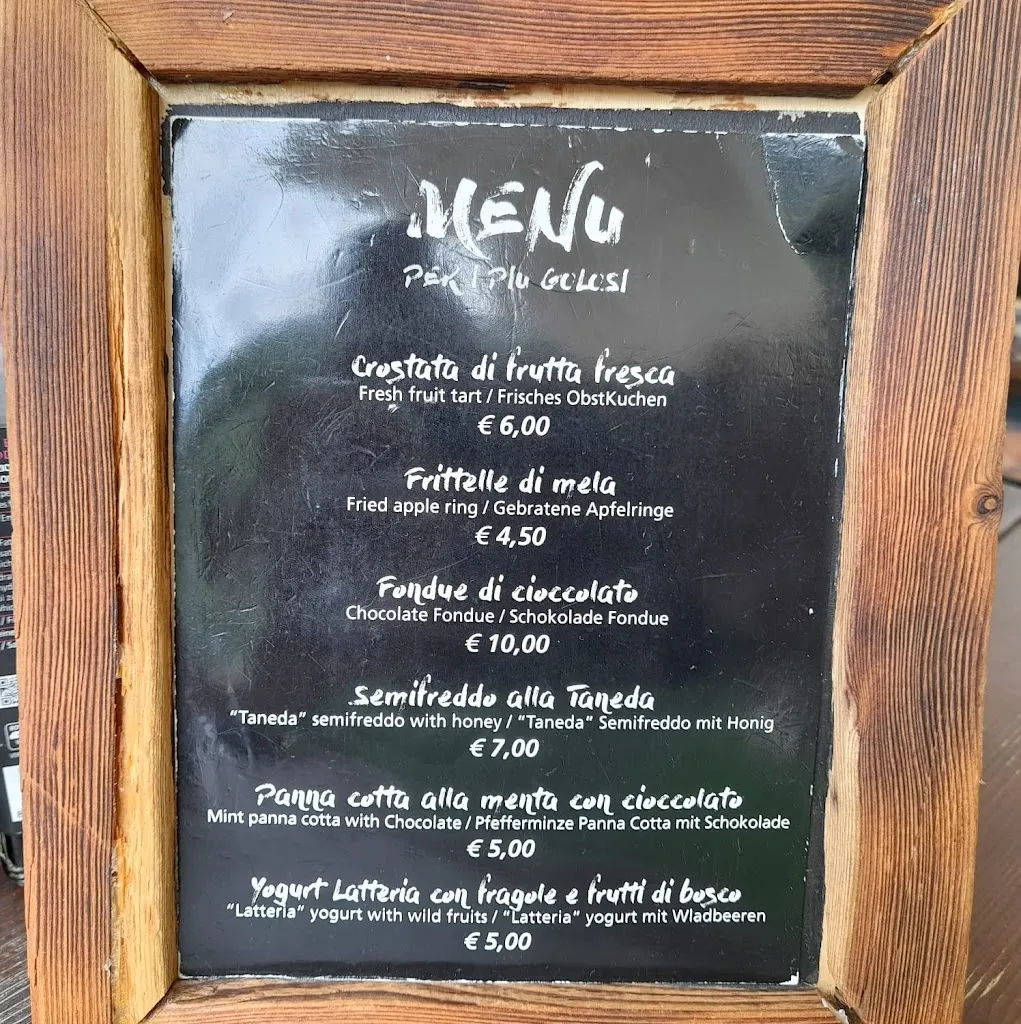 MENU
PER I PIU GOLOSI
Crostata di frutta fresca
Fresh fruit tart / Frisches ObstKuchen
€ 6,00
Frittelle di mela
Fried apple ring / Gebratene Apfelringe
€ 4,50
Fondue di cioccolato
Chocolate Fondue / Schokolade Fondue
€ 10,00
Semifreddo alla Taneda
“Taneda” semifreddo with honey / “Taneda” Semifreddo mit Honig
€ 7,00
Panna cotta alla menta con cioccolato
Mint panna cotta with Chocolate / Pfefferminze Panna Cotta mit Schokolade
€ 5,00
Yogurt Latteria con fragole e frutti di bosco
“Latteria” yogurt with wild fruits / “Latteria” yogurt mit Wladbeeren
€ 5,00